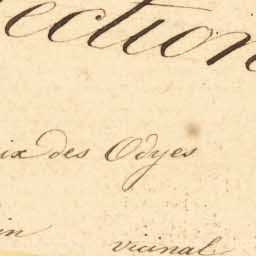 ection
ix des Odyes
in vicinal